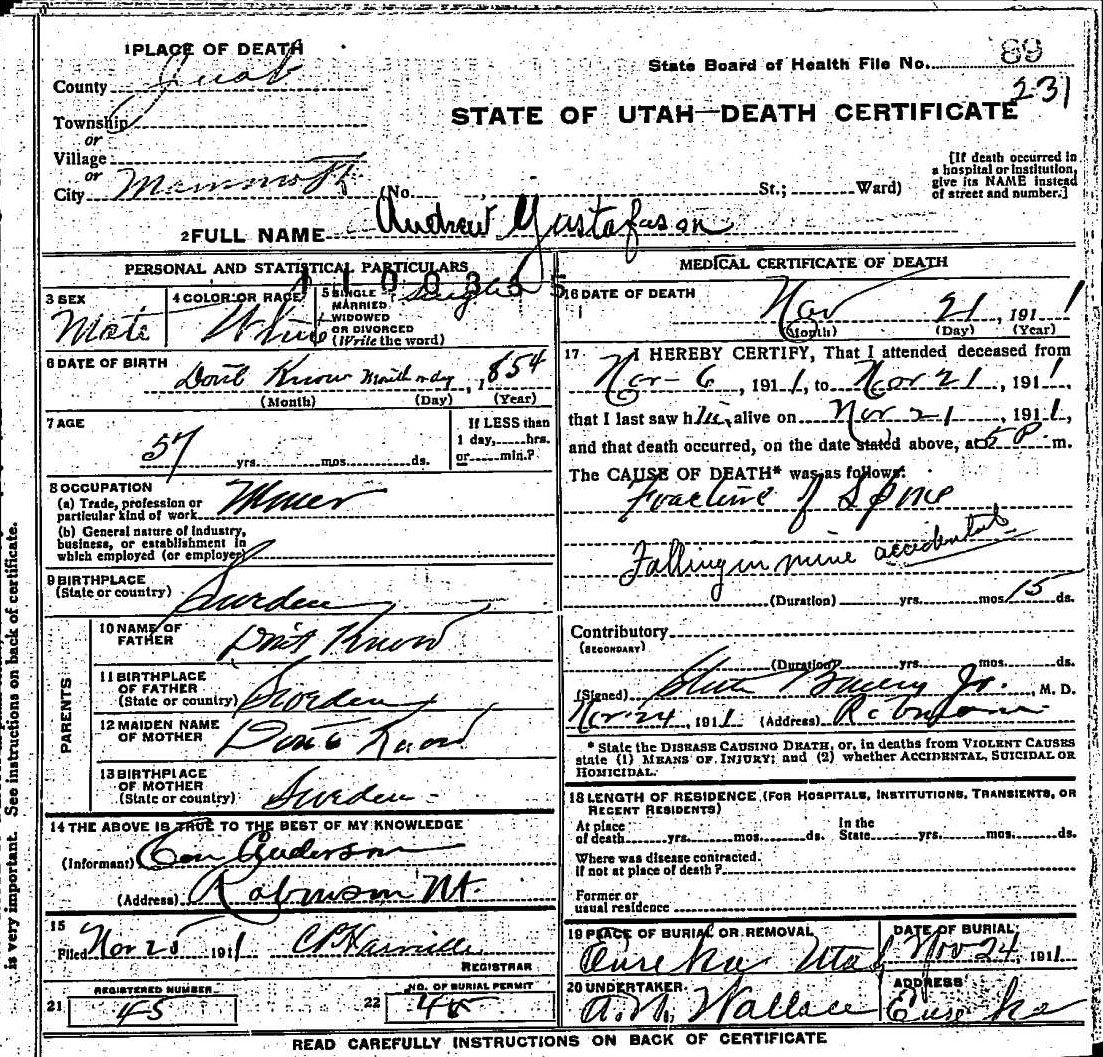 1 PLACE OF DEATH
County Juab
Township
or
Village
or
City Mammoth
(No. St.; Ward)
State Board of Health File No. 89
231
STATE OF UTAH—DEATH CERTIFICATE
[If death occurred in
a hospital or institution,
give its NAME instead
of street and number.]
2 FULL NAME Andrew Gustafason
PERSONAL AND STATISTICAL PARTICULARS
3 SEX
Male
4 COLOR OR RACE
White
5 SINGLE
MARRIED
WIDOWED
OR DIVORCED
(Write the word)
Single
6 DATE OF BIRTH
Dont Know Month or day, 1854
(Month) (Day) (Year)
7 AGE
57 yrs. mos. ds.
If LESS than
1 day, hrs.
or min.?
8 OCCUPATION
(a) Trade, profession or
particular kind of work Miner
(b) General nature of industry,
business, or establishment in
which employed (or employer)
9 BIRTHPLACE
(State or country)
Sweden
PARENTS
10 NAME OF
FATHER
Don't Know
11 BIRTHPLACE
OF FATHER
(State or country)
Sweden
12 MAIDEN NAME
OF MOTHER
Dont Know
13 BIRTHPLACE
OF MOTHER
(State or country)
Sweden
14 THE ABOVE IS TRUE TO THE BEST OF MY KNOWLEDGE
(Informant) Anderson
(Address) Robinson Ut.
15
Filed Nov 25 1911
REGISTRAR
REGISTERED NUMBER
21 45
NO. OF BURIAL PERMIT
22 45
MEDICAL CERTIFICATE OF DEATH
16 DATE OF DEATH
Nov 21, 1911
(Month) (Day) (Year)
17 I HEREBY CERTIFY, That I attended deceased from
Nov-6, 1911, to Nov 21, 1911,
that I last saw him alive on Nov 21, 1911,
and that death occurred, on the date stated above, at 5 P m.
The CAUSE OF DEATH* was as follows:
Fracture of Spine
Falling in mine accidental
(Duration) yrs. mos. 15 ds.
Contributory
(SECONDARY)
(Duration) yrs. mos. ds.
(Signed) Steele Bailey Jr., M. D.
Nov 24, 1911 (Address) Robinson
* State the DISEASE CAUSING DEATH, or, in deaths from VIOLENT CAUSES
state (1) MEANS OF INJURY; and (2) whether ACCIDENTAL, SUICIDAL OR
HOMICIDAL.
18 LENGTH OF RESIDENCE (FOR HOSPITALS, INSTITUTIONS, TRANSIENTS, OR
RECENT RESIDENTS)
At place
of death yrs. mos. ds.
In the
State yrs. mos. ds.
Where was disease contracted.
if not at place of death?
Former or
usual residence
19 PLACE OF BURIAL OR REMOVAL
Eureka Utah
DATE OF BURIAL
Nov 24, 1911
20 UNDERTAKER
Wallace
ADDRESS
Eureka
READ CAREFULLY INSTRUCTIONS ON BACK OF CERTIFICATE
is very important. See instructions on back of certificate.